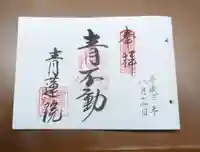 奉拝
平成二十年
八月十二日
青不動
青蓮院